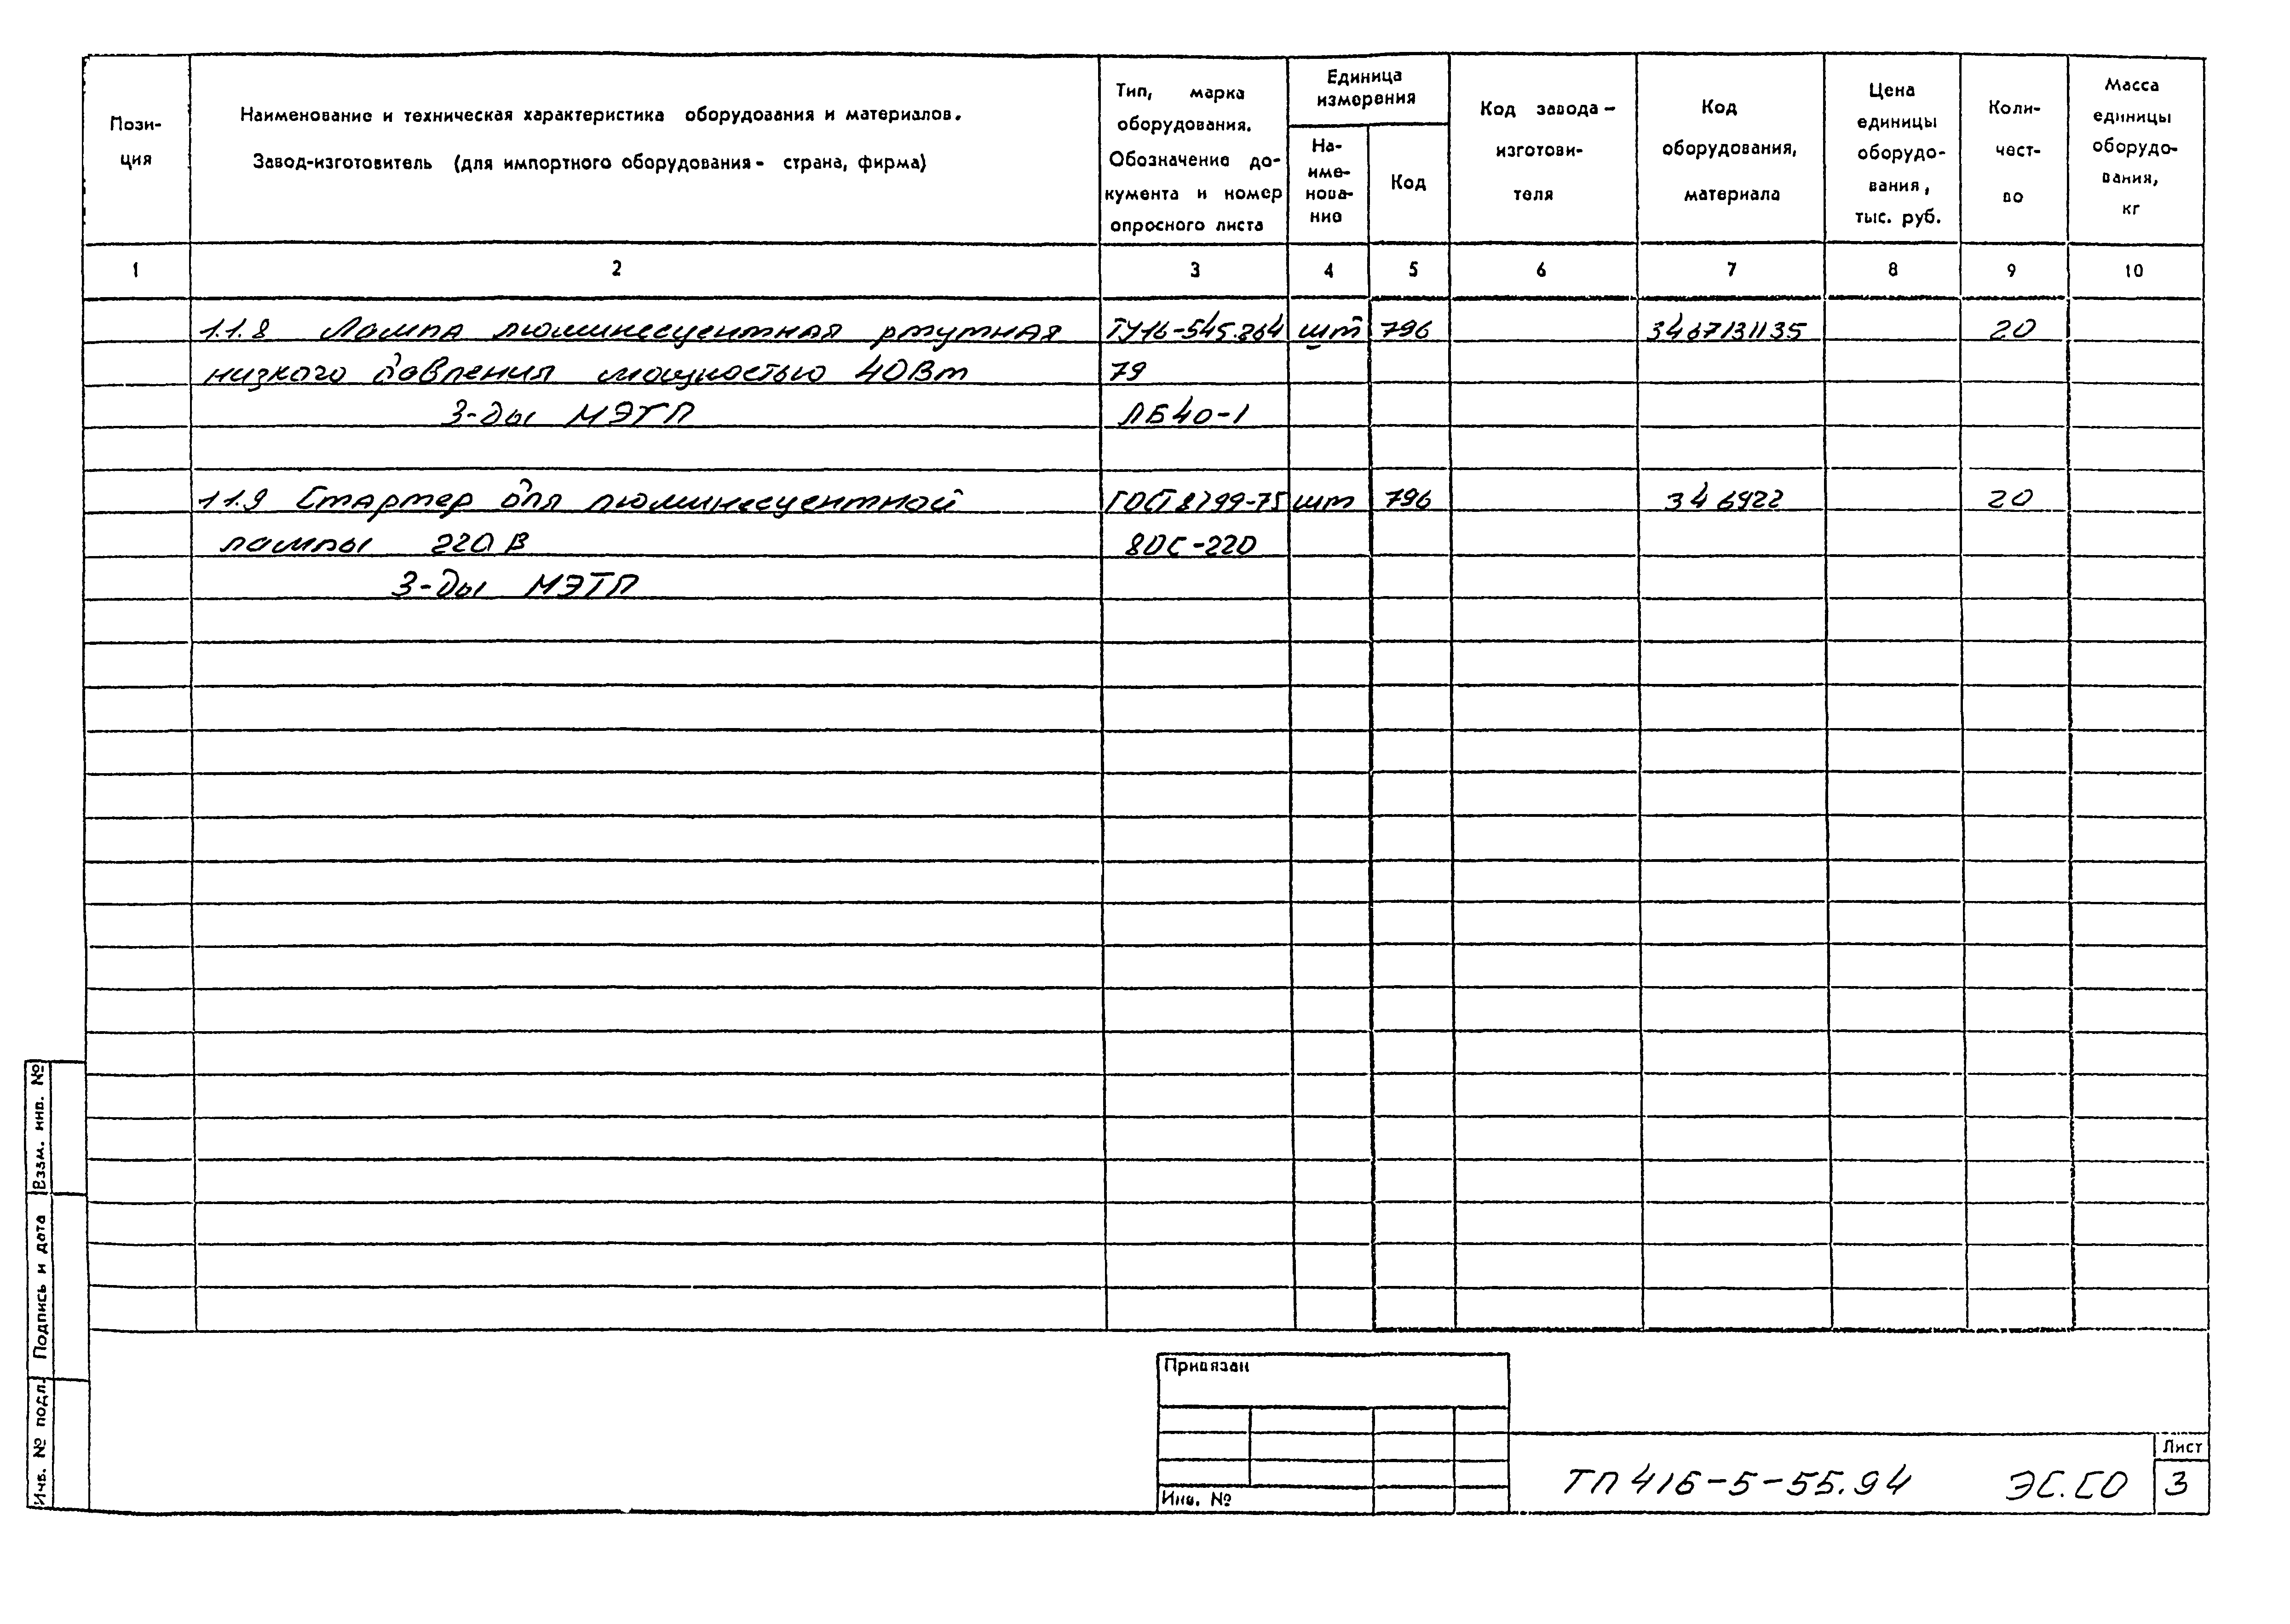 Пози-
ция
Наименование и техническая характеристика оборудования и материалов.
Завод-изготовитель (для импортного оборудования - страна, фирма)
Тип, марка
оборудования.
Обозначение до-
кумента и номер
опросного листа
Единица
измерения
На-
име-
нова-
ние
Код
Код завода –
изготови-
теля
Код
оборудования,
материала
Цена
единицы
оборудо-
вания,
тыс. руб.
Коли-
чест-
во
Масса
единицы
оборудо-
вания,
кг
1 2 3 4 5 6 7 8 9 10
1.1.8 Лампа люминесцентная ртутная ТУ16-545.264 шт 796 3467131135 20
низкого давления мощностью 40Вт 79
З-ды МЭТП ЛБ40-1
1.1.9 Стартер для люминесцентной ГОСТ 8799-75 шт 796 346922 20
лампы 220 В 80С-220
З-ды МЭТП
Взам. инв. №
Подпись и дата
Инв. № подл.
Привязан
Инв. №
ТП 416-5-55.94 ЭС.СО
Лист
3